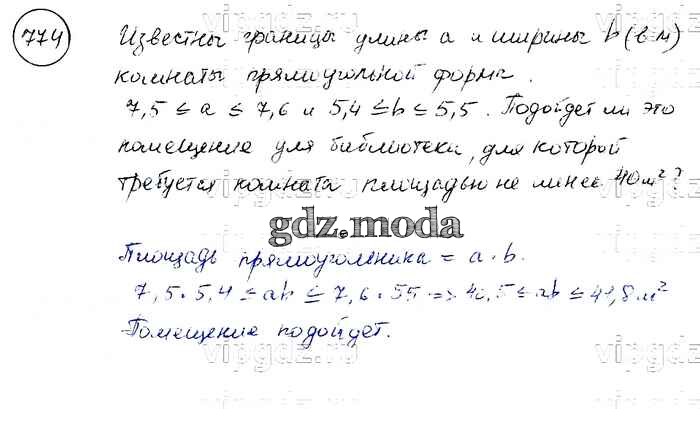 774
Известны границы длины a и ширины b (в м)
комнаты прямоугольной формы.
7,5 ≤ a ≤ 7,6 и 5,4 ≤ b ≤ 5,5. Подойдет ли это
помещение для библиотеки, для которой
требуется комната площадью не менее 40 м²?
gdz.moda
Площадь прямоугольника = a · b.
7,5 · 5,4 ≤ ab ≤ 7,6 · 5,5 => 40,5 ≤ ab ≤ 41,8 м²
Помещение подойдет.